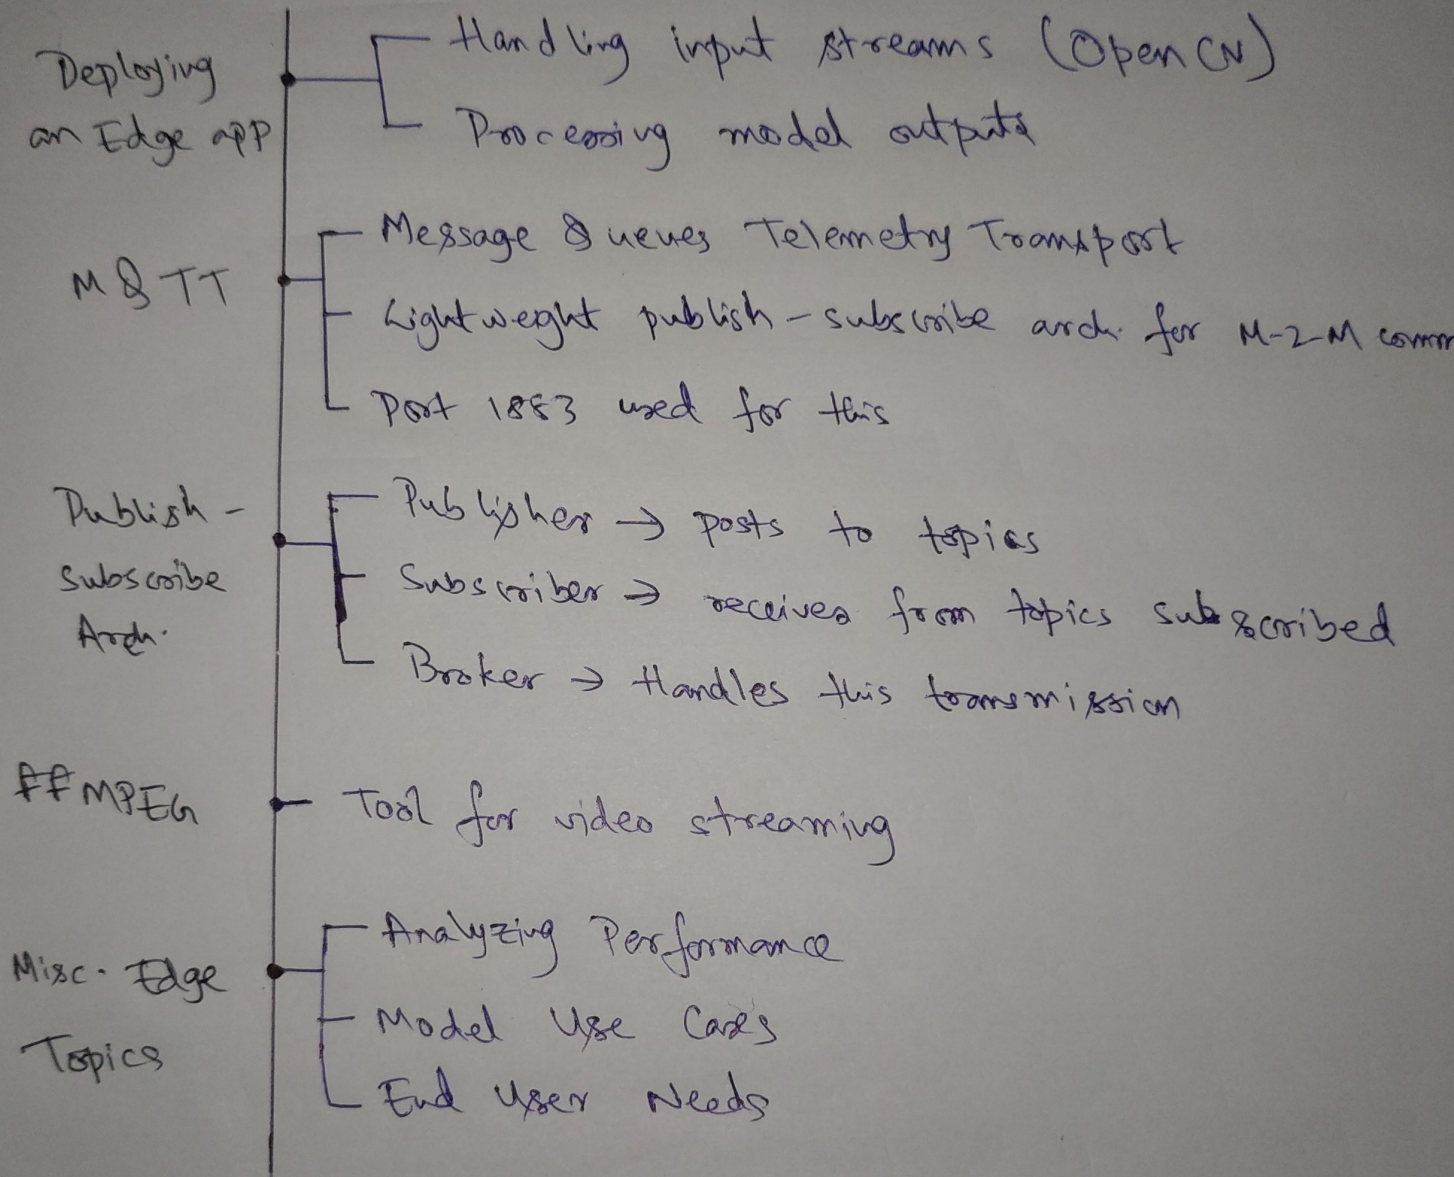 Deploying
an Edge app
Handling input streams (OpenCV)
Processing model outputs
MQTT
Message Queues Telemetry Transport
Lightweight publish-subscribe arch. for M-2-M comm
Port 1883 used for this
Publish-
Subscribe
Arch.
Publisher → posts to topics
Subscriber → receives from topics subscribed
Broker → Handles this transmission
ffMPEG
Tool for video streaming
Misc. Edge
Topics
Analyzing Performance
Model Use Cases
End User Needs